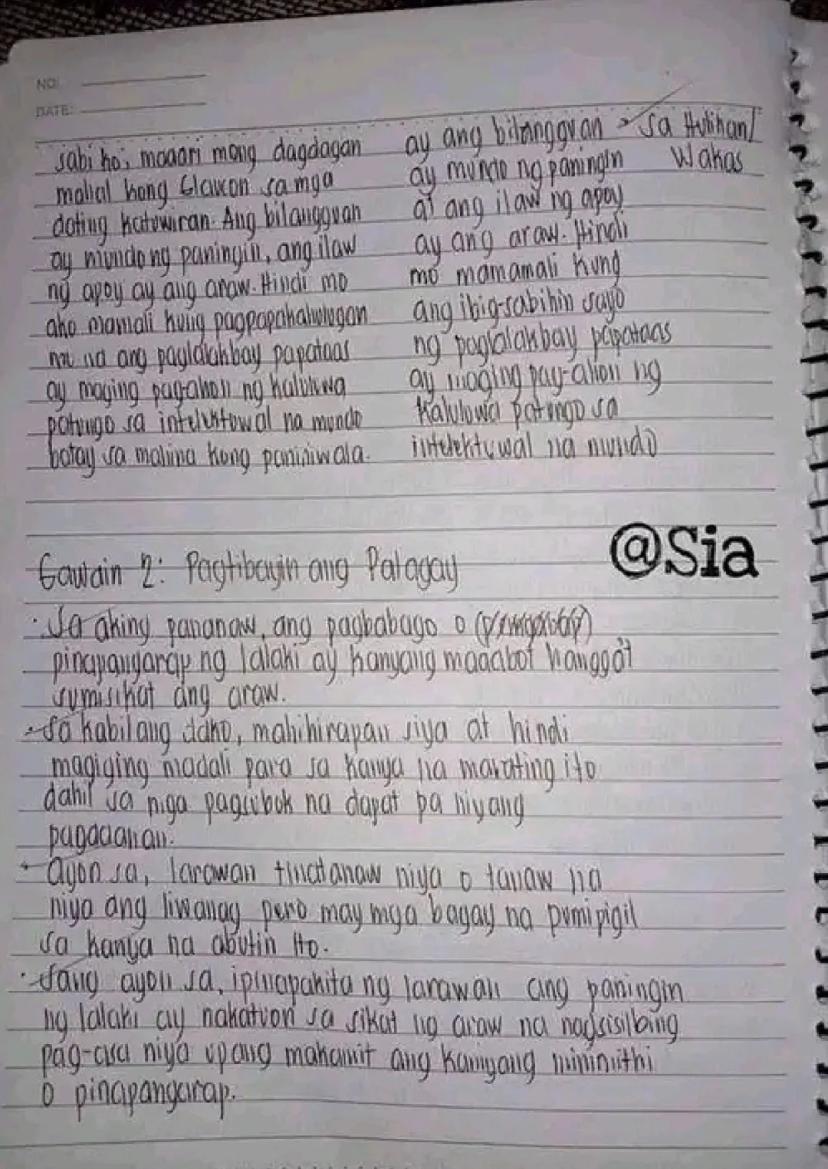 NO:
DATE:
sabi ko, maaari mong dagdagan
mahal kong Glaucon sa mga
dating katuwiran. Ang bilangguan
ay mundo ng paningin, ang ilaw
ng apoy ay ang araw. Hindi mo
ako mamali kung pagpapakahulugan
mo na ang paglalakbay papataas
ay maging pag-ahon ng kaluluwa
patungo sa intelektuwal na mundo
batay sa mahina kong paniniwala.
ay ang bilangguan → sa Hulihan/
ay mundo ng paningin Wakas
at ang ilaw ng apoy
ay ang araw. Hindi
mo mamamali kung
ang ibig-sabihin sayo
ng paglalakbay papataas
ay maging pag-ahon ng
kaluluwa patungo sa
intelektuwal na mundo
@Sia
Gawain 2: Pagtibayin ang Palagay
· Sa aking pananaw, ang pagbabago o
pinapangarap ng lalaki ay kanyang maaabot hanggat
sumisikat ang araw.
- Sa kabilang dako, mahihirapan siya at hindi
magiging madali para sa kanya na marating ito
dahil sa mga pagsubok na dapat pa niyang
pagdaanan.
· Ayon sa, larawan tinatanaw niya o tanaw na
niya ang liwanag pero may mga bagay na pumipigil
sa kanya na abutin ito.
· Sang ayon sa, ipinapakita ng larawan ang paningin
ng lalaki ay nakatuon sa sikat ng araw na nagsisilbing
pag-asa niya upang makamit ang kaniyang minimithi
o pinapangarap.